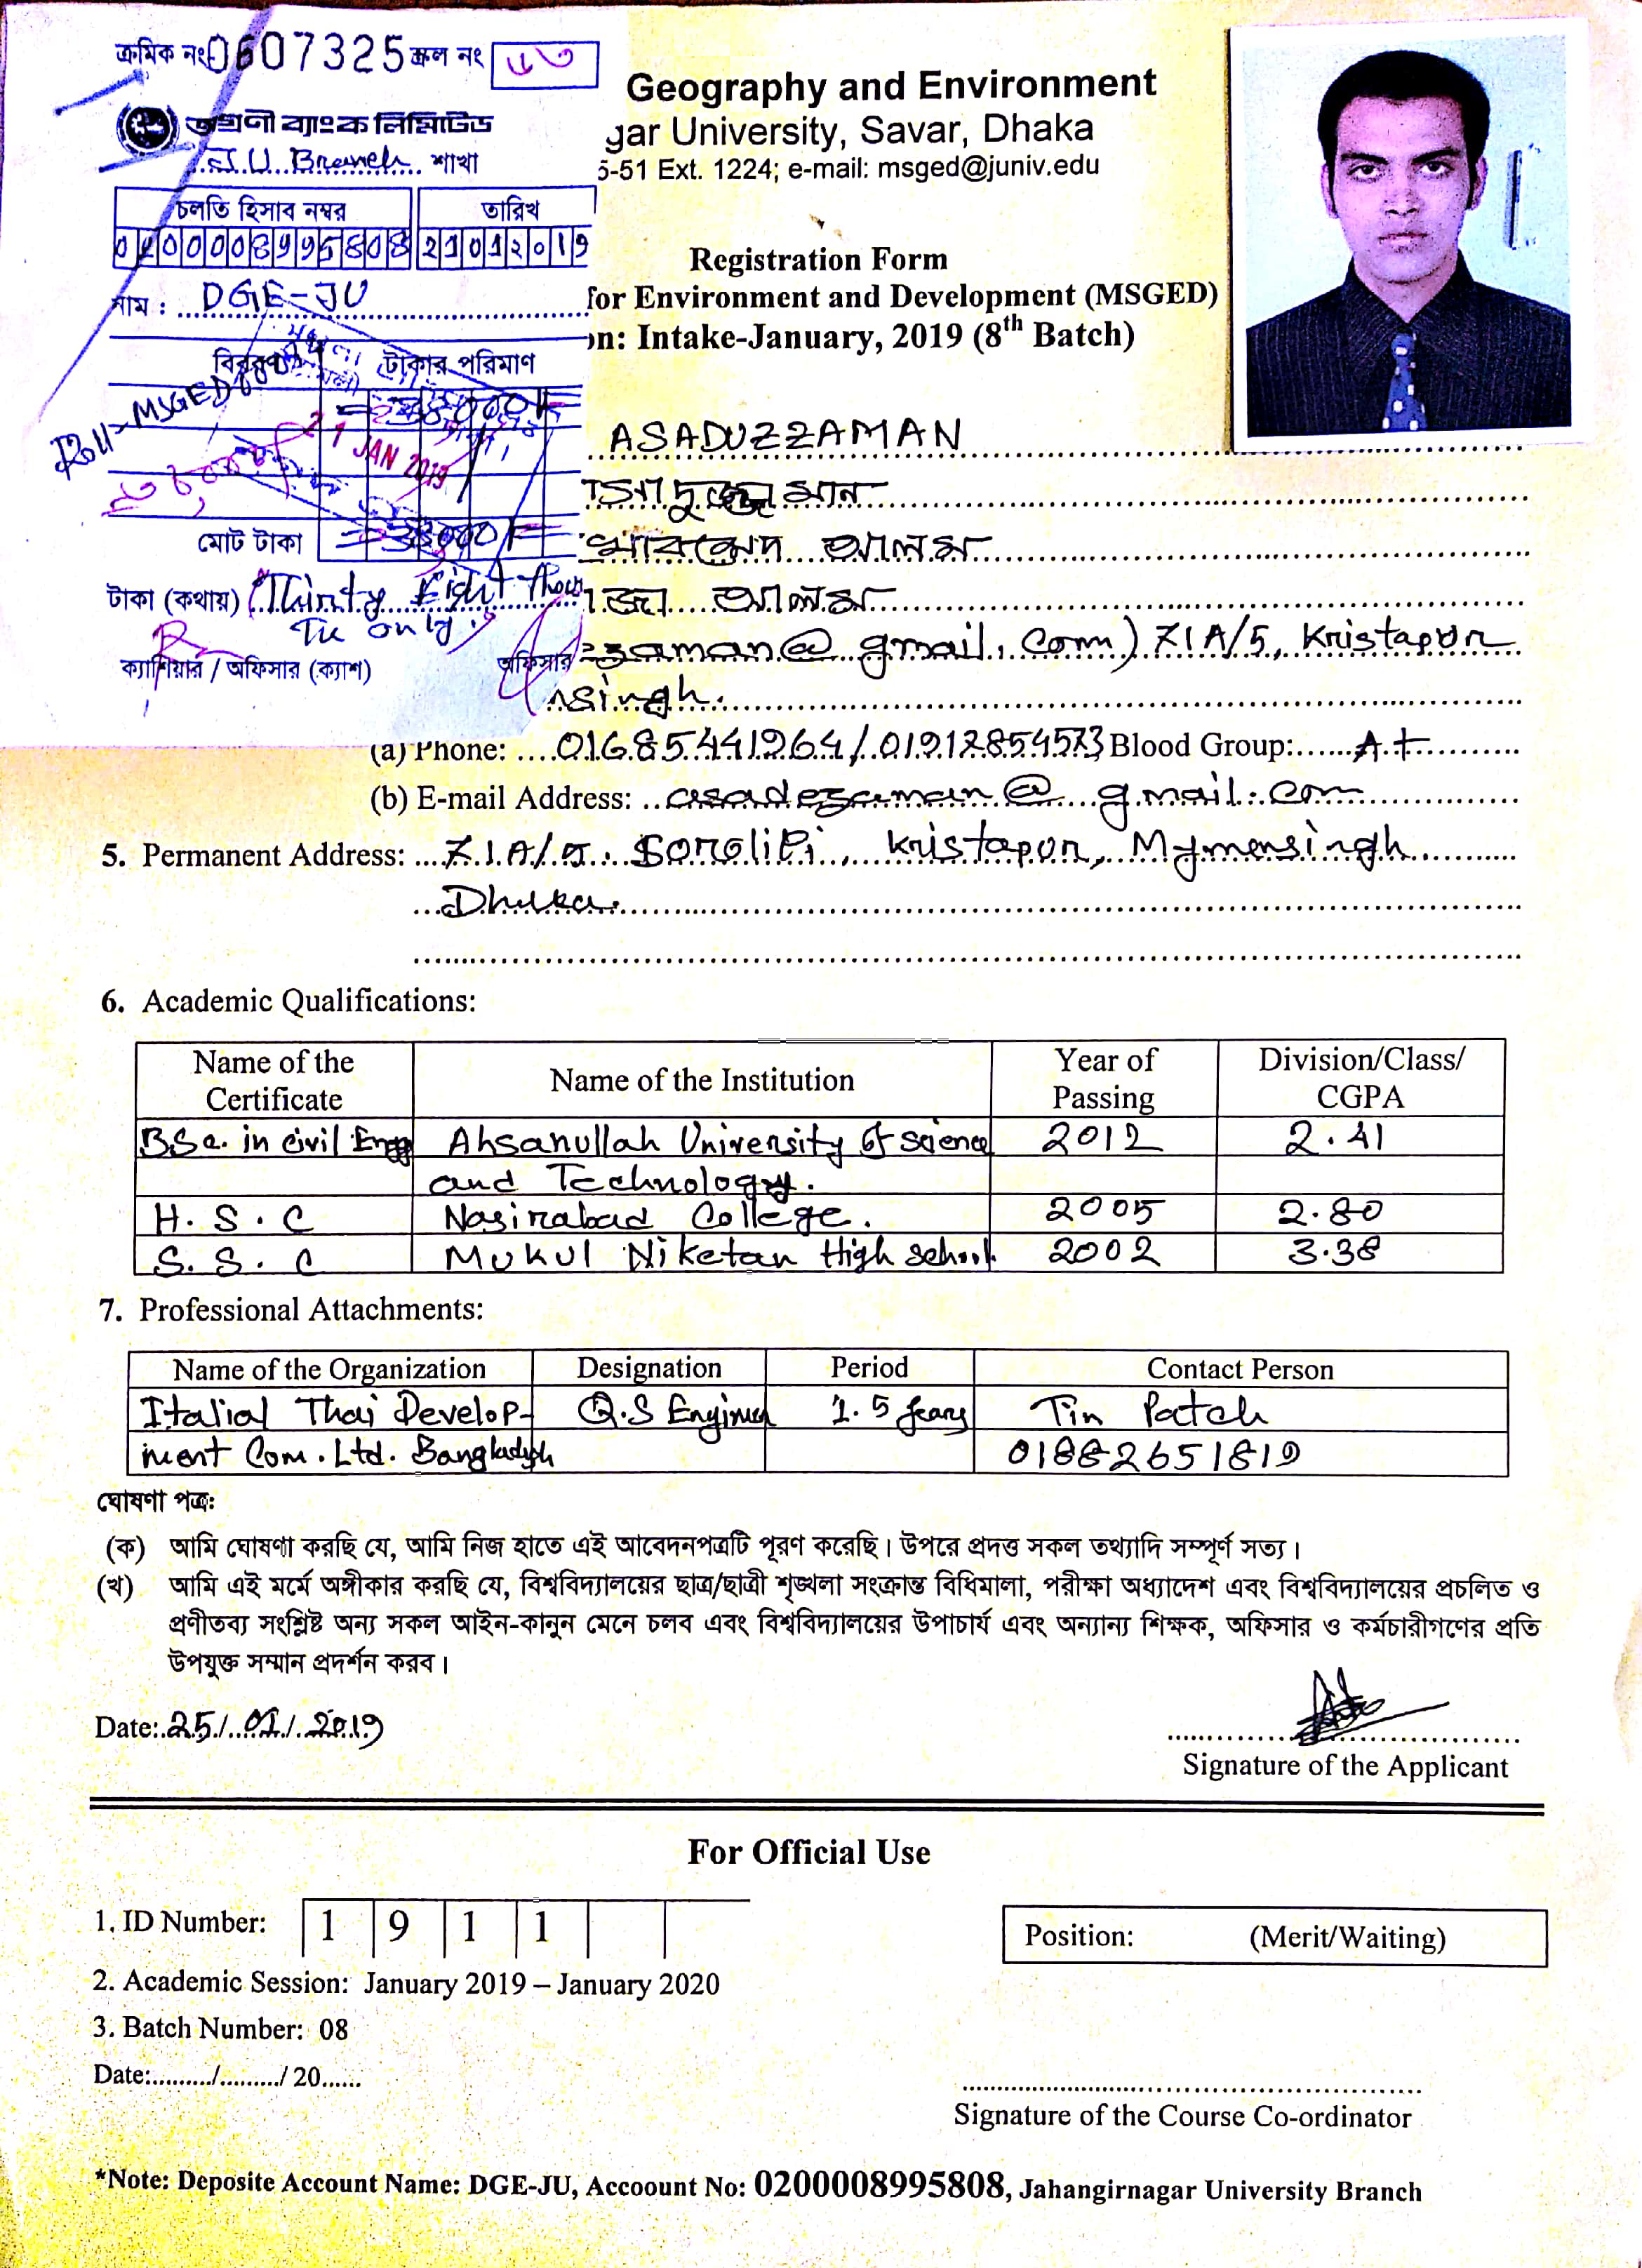 ক্রমিক নং 0607325 স্ক্রল নং
অগ্রণী ব্যাংক লিমিটেড
J.U. Branch শাখা
চলতি হিসাব নম্বর তারিখ
0200008995808 21012019
নাম : DGE-JU
বিবরণ টাকার পরিমাণ
Roll- MSGED
21 JAN 2019
মোট টাকা
টাকা (কথায়) Thirty Eight thou
Tk only
ক্যাশিয়ার / অফিসার (ক্যাশ) অফিসার
Geography and Environment
gar University, Savar, Dhaka
5-51 Ext. 1224; e-mail: msged@juniv.edu
Registration Form
for Environment and Development (MSGED)
on: Intake-January, 2019 (8th Batch)
ASADUZZAMAN
আলম
আলম
zaman@gmail.com) ZIA/5, Kristapur
nsingh.
(a) Phone: 01685441264/01912854573 Blood Group: A+
(b) E-mail Address: asadezaman@gmail.com
5. Permanent Address: Z.I.A/5. Sorolipi, Kristapur, Mymensingh
Dhaka.
6. Academic Qualifications:
Name of the Certificate Name of the Institution Year of Passing Division/Class/ CGPA
B.Sc. in civil Engg Ahsanullah University of science 2012 2.41
and Technology.
H.S.C Nasirabad College. 2005 2.80
S.S.C Mukul Niketan High school 2002 3.38
7. Professional Attachments:
Name of the Organization Designation Period Contact Person
Italial Thai Develop- Q.S Engineer 1.5 years Tin Patch
ment Com. Ltd. Bangladesh 01882651819
ঘোষণা পত্র:
(ক) আমি ঘোষণা করছি যে, আমি নিজ হাতে এই আবেদনপত্রটি পূরণ করেছি। উপরে প্রদত্ত সকল তথ্যাদি সম্পূর্ণ সত্য।
(খ) আমি এই মর্মে অঙ্গীকার করছি যে, বিশ্ববিদ্যালয়ের ছাত্র/ছাত্রী শৃঙ্খলা সংক্রান্ত বিধিমালা, পরীক্ষা অধ্যাদেশ এবং বিশ্ববিদ্যালয়ের প্রচলিত ও
প্রণীতব্য সংশ্লিষ্ট অন্য সকল আইন-কানুন মেনে চলব এবং বিশ্ববিদ্যালয়ের উপাচার্য এবং অন্যান্য শিক্ষক, অফিসার ও কর্মচারীগণের প্রতি
উপযুক্ত সম্মান প্রদর্শন করব।
Date: 25/01/2019
Signature of the Applicant
For Official Use
1. ID Number: 1 9 1 1
Position: (Merit/Waiting)
2. Academic Session: January 2019 – January 2020
3. Batch Number: 08
Date:........./........./ 20......
Signature of the Course Co-ordinator
*Note: Deposite Account Name: DGE-JU, Accoount No: 0200008995808, Jahangirnagar University Branch